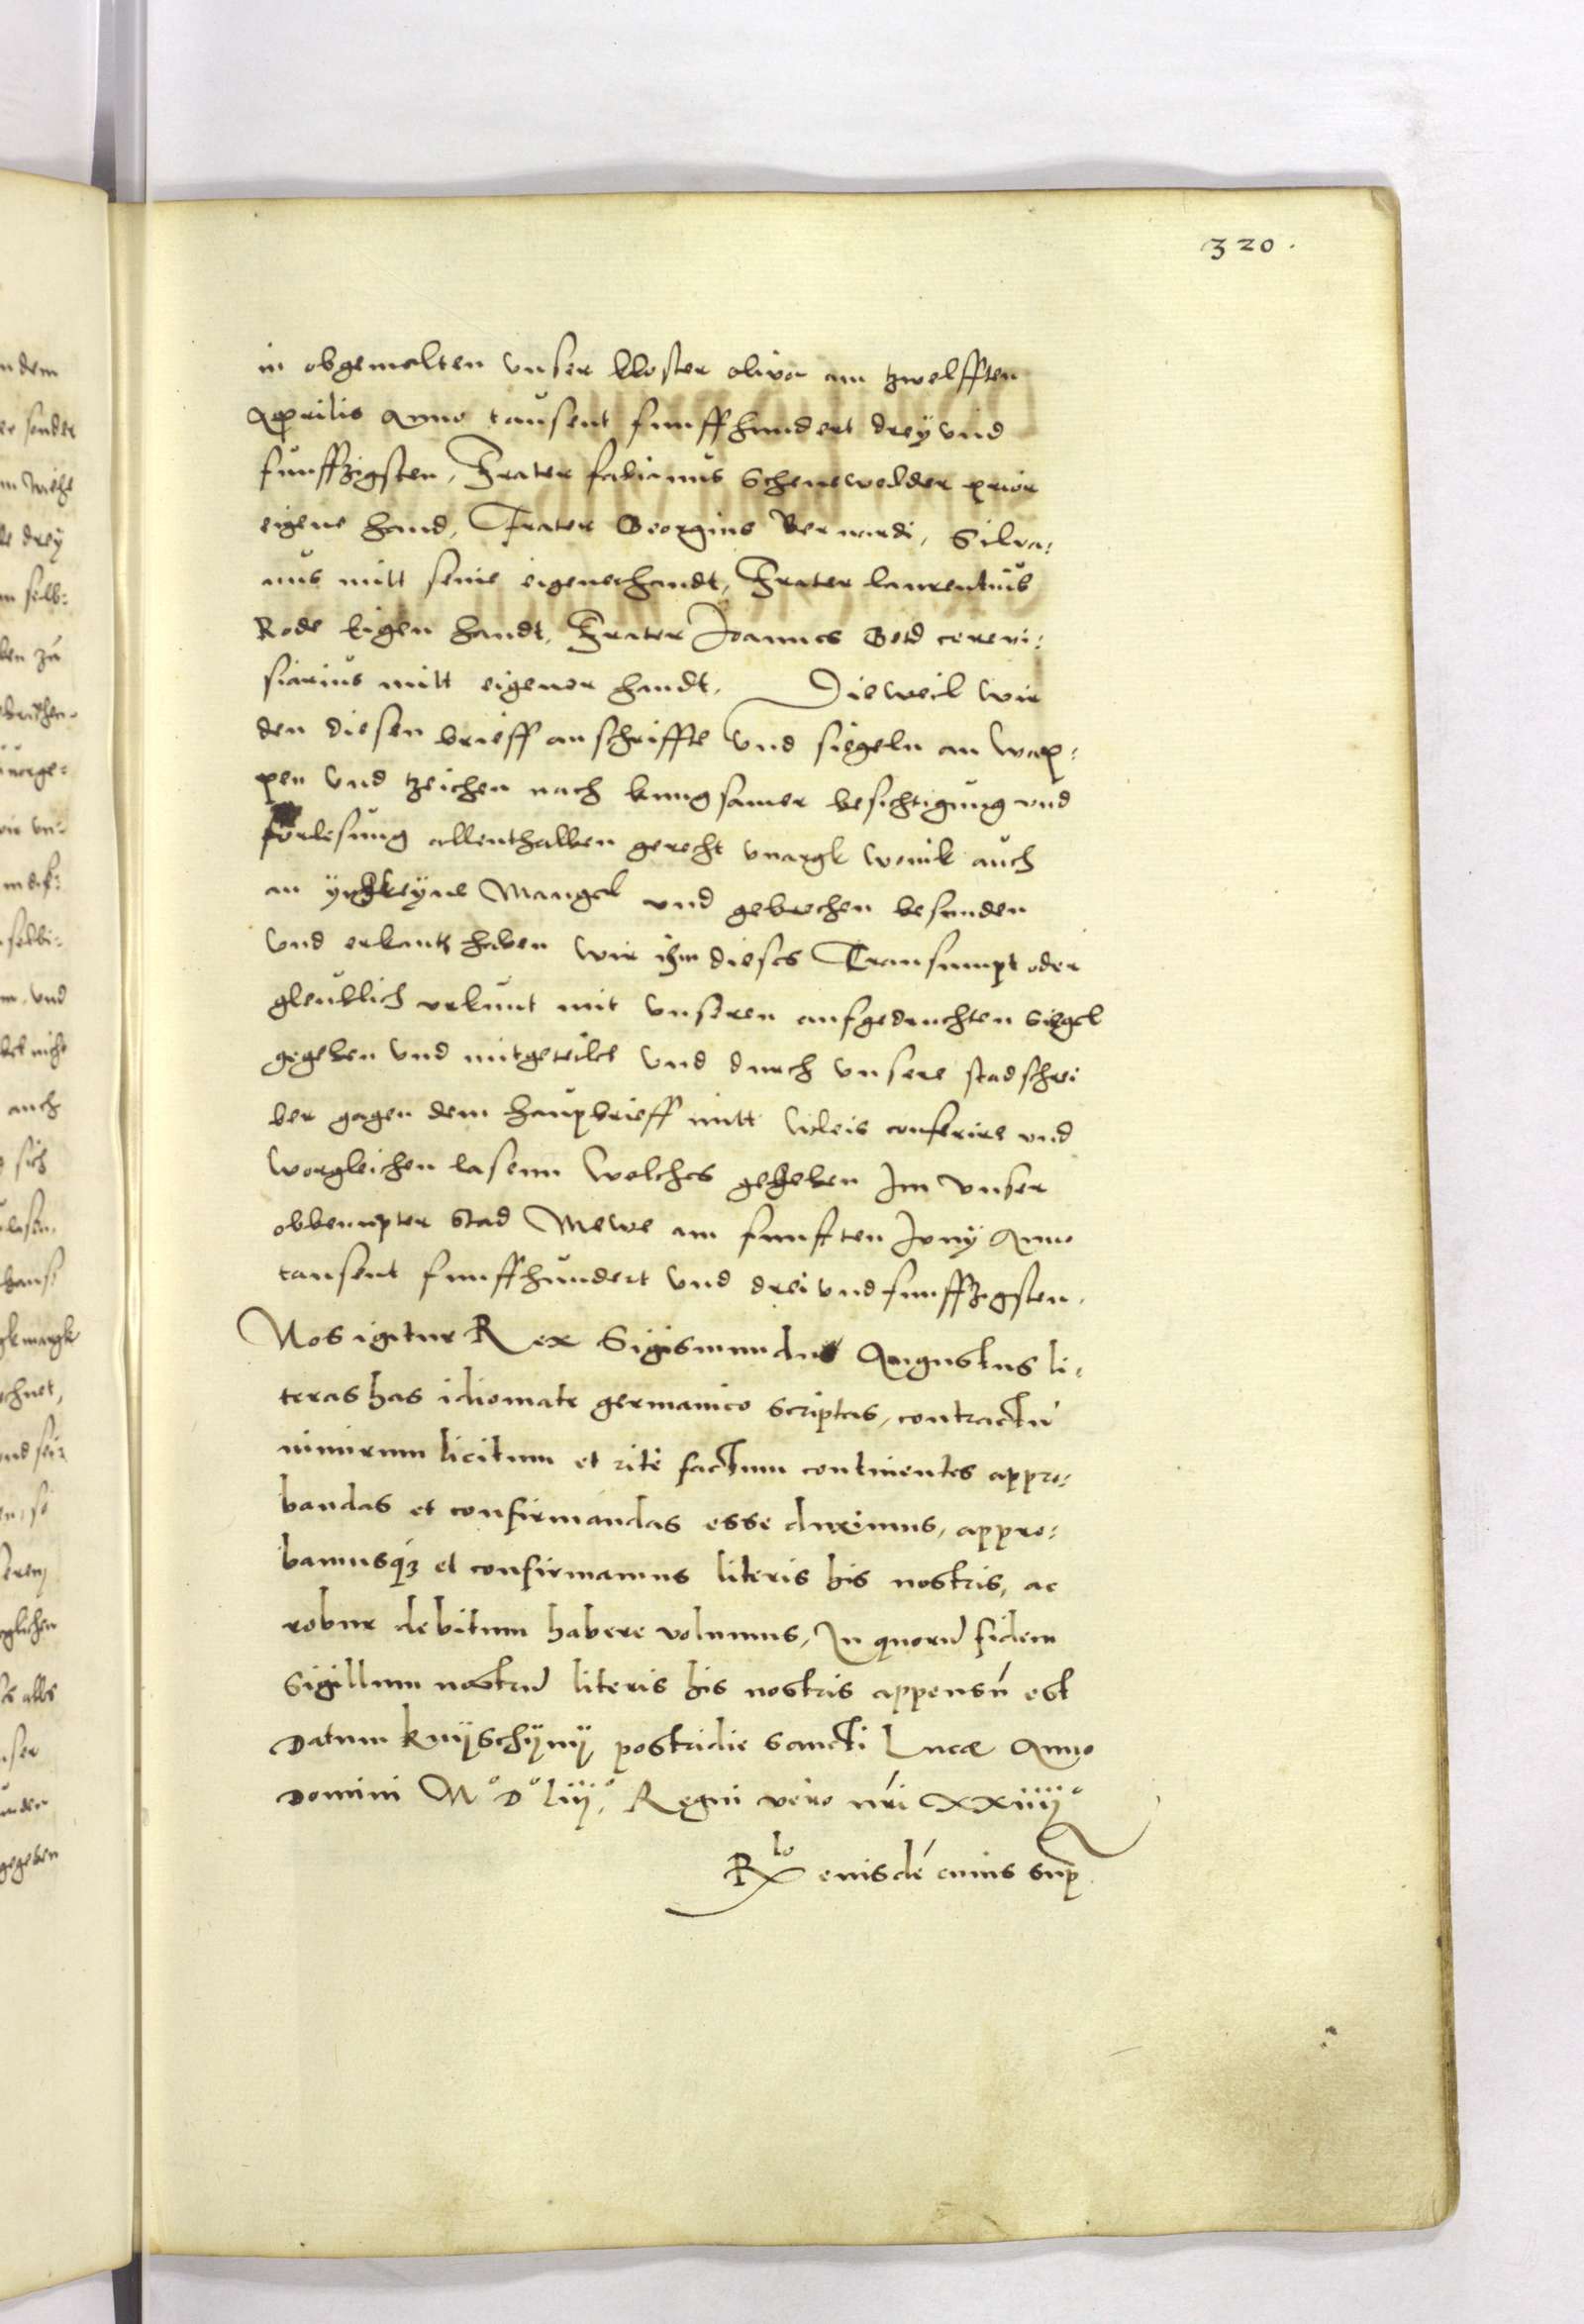 320.
in obgemelten unser kloster oliva am zwelfften
Aprilis Anno tausent funffhundert drey und
funffzigsten, Frater fabianus Schenewelder prior
eigene hand, Frater Georgius Bernardi, Silva:
nus mitt seine eigenerhandt, Frater laurentius
Rode Eigen handt, Frater Joannes Gotd cerevi:
siarius mitt eigener handt, Dieweil wir
den diesen brieff an schriffte und siegeln an wap:
pen und tzeichen nach kungsamer besichtigung und
forlesung allenthalben gerecht unargk wonik auch
an yngkeyne Mangel und gebrechen befunden
und erkantt haben wir ihm dieses Transumpt oder
gleublich urkunt mit unseren aufgedruchten Siegel
gegeben und mitgeteilet und durch unsere stadschrei
ber gagen dem haupbrieff mitt vleis conferire und
vorgleichen lasenn Welches gegeben Im unser
obbenupter Stad Mewe am funften Juny Anno
tausent funffhundert und drei und funffzigsten.
Nos igitur Rex Sigismundus Augustus li:
teras has idiomate germanico scriptas, contractū
nimirum licitum et rite factum continentes appro:
bandas et confirmandas esse duximus, appro:
bamusq3 et confirmamus literis his nostris, ac
robur debitum habere volumus, In quorū fidem
Sigillum nostrū literis his nostris appensū est
Datum knyschyny postridie Sancti Lucæ Anno
Domini M° D° Liij°, Regni vero nr̄i xxiiij°
Rlo eiusdē cuius sup